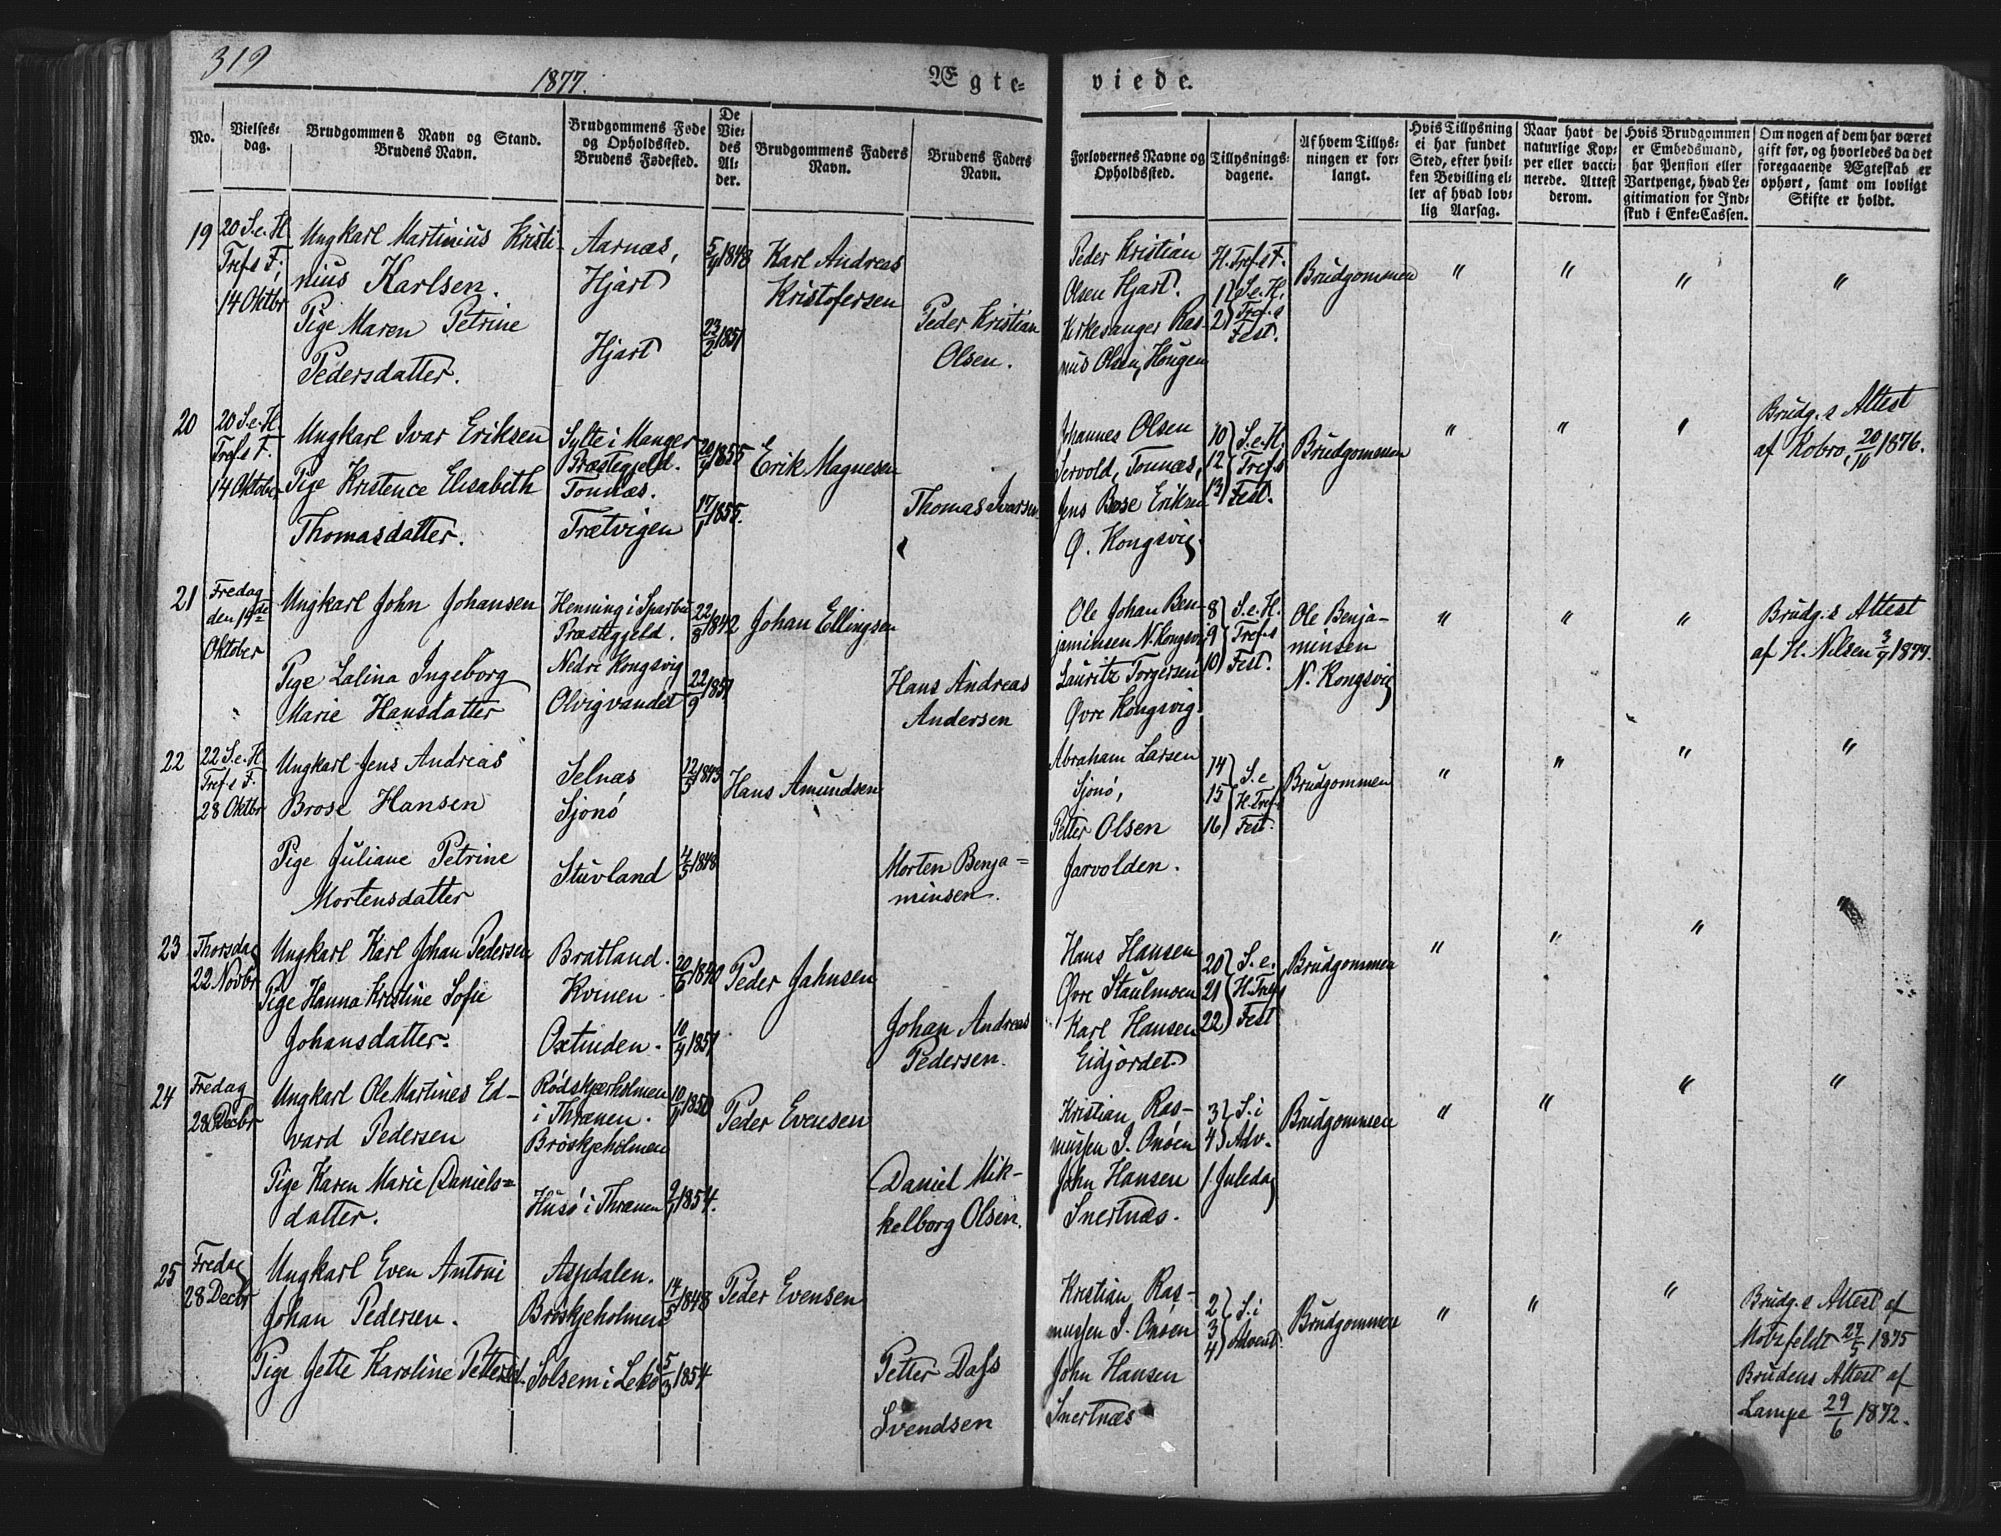 319
1877.
Ægte-
viede.
No.
Vielses-
dag.
Brudgommens Navn og Stand.
Brudens Navn.
Brudgommens Føde
og Opholdssted.
Brudens Fødested.
De
Vie-
des
Al-
der.
Brudgommens Faders
Navn.
Brudens Faders
Navn.
Forlovernes Navne og
Opholdssted.
Tillysnings-
dagene.
Af hvem Tillys-
ningen er for-
langt.
Hvis Tillysning
ei har fundet
Sted, efter hvil-
ken Bevilling el-
ler af hvad lov-
lig Aarsag.
Naar havt de
naturlige Kop-
per eller vacci-
nerede. Attest
derom.
Hvis Brudgommen
er Embedsmand,
har Pension eller
Vartpenge, hvad Le-
gitimation for Ind-
skud i Enke-Cassen.
Om nogen af dem har været
gift før, og hvorledes da det
foregaaende Ægteskab er
ophørt, samt om lovligt
Skifte er holdt.
19
20 S. e. H.
Tref.s F.,
14 Oktbr
Ungkarl Martinius Kristi-
nius Karlsen.
Pige Maren Petrine
Pedersdatter.
Aarnæs,
Hjart
Hjart
5/9 1848
23/2 1851
Karl Andreas
Kristofersen
Peder Kristian
Olsen.
Peder Kristian
Olsen Hjart.
Kirkesanger Ras-
mus Olsen, Hougen
H. Tref.s F.
1) S. e. H.
2) Tref.s
Fest.
Brudgommen
"
"
"
"
20
20 S. e. H.
Tref.s F.
14 Oktober
Ungkarl Ivar Eriksen
Pige Kristence Elisabeth
Thomasdatter.
Sylte i Manger
Præstegjeld.
Tonnæs.
Trætvigen
20/9 1855
17/1 1855.
Erik Magnesen
Thomas Ivarsen
Johannes Olsen
Jervold, Tonnæs,
Jens Brose Eriksen
Ø. Kongsvig.
10 } S. e. H.
12 } Tref.s
13 } Fest.
Brudgommen
"
"
"
Brudg.s Attest
af Kobro, 20/10 1876.
21
Fredag
den 19de
Oktober
Ungkarl John Johansen
Pige Lalina Ingeborg
Marie Hansdatter
Henning i Sparbu
Præstegjeld.
Nedre Kongsvig
Olvigvandet
22/8 1842
22/9 1851
Johan Ellingsen
Hans Andreas
Andersen
Ole Johan Ben-
jaminsen N. Kongsvig
Lauritz Torgersen
Øvre Kongsvig.
8 } S. e. H.
9 } Tref.s
10 } Fest.
Ole Benja-
minsen
N. Kongsvig
"
"
"
Brudg.s Attest
af H. Nilsen 3/9 1877.
22
22 S. e. H.
Tref.s F.
28 Oktbr
Ungkarl Jens Andreas
Brose Hansen
Pige Juliane Petrine
Mortensdatter
Selnæs
Sjonø
Stuvland
12/3 1843
4/5 1848
Hans Amundsen
Morten Benja=
minsen.
Abraham Larsen
Sjonø,
Petter Olsen
Jarvolden.
14 } S. e
15 } H. Tref.s
16 } Fest.
Brudgommen
"
"
"
"
23
Thorsdag
22 Novbr
Ungkarl Karl Johan Pedersen
Pige Hanna Kristine Sofie
Johansdatter.
Bratland.
Kvinen.
Oxtinden.
20/6 1840
10/4 1851
Peder Jahnsen
Johan Andreas
Pedersen.
Hans Hansen
Øvre Staulmoen
Karl Hansen
Eidjordet.
20 } S. e.
21 } H. Tref.s
22 } Fest
Brudgommen
"
"
"
"
24
Fredag
28 Decbr
Ungkarl Ole Martines Ed-
vard Pedersen
Pige Karen Marie Daniels=
datter.
Rødskjærholmen
i Thrænen.
Brøskjeholmen
Husø i Thrænen
10/9 1850
1854.
Peder Evensen
Daniel Mik-
kelborg Olsen.
Kristian Ras-
mussen I. Onøen
John Hansen
Snertnæs.
3 } S. i
4 } Adv.
1. Juledag
Brudgommen
"
"
"
"
25
Fredag
28 Decbr
Ungkarl Even Antoni
Johan Pedersen.
Pige Jette Karoline Pettersd.
Aspdalen.
Brøskjeholmen
Solsem i Lekø
14/5 1848
5/3 1854
Peder Evensen
Petter Dass
Svendsen
Kristian Ras-
mussen I. Onøen
John Hansen
Snertnæs
2 } S. i
3
4 } Advent.
Brudgommen
"
"
"
Brudg.s Attest af
Motzfeldt 27/5 1875
Brudens Attest af
Lampe 29/6 1872.